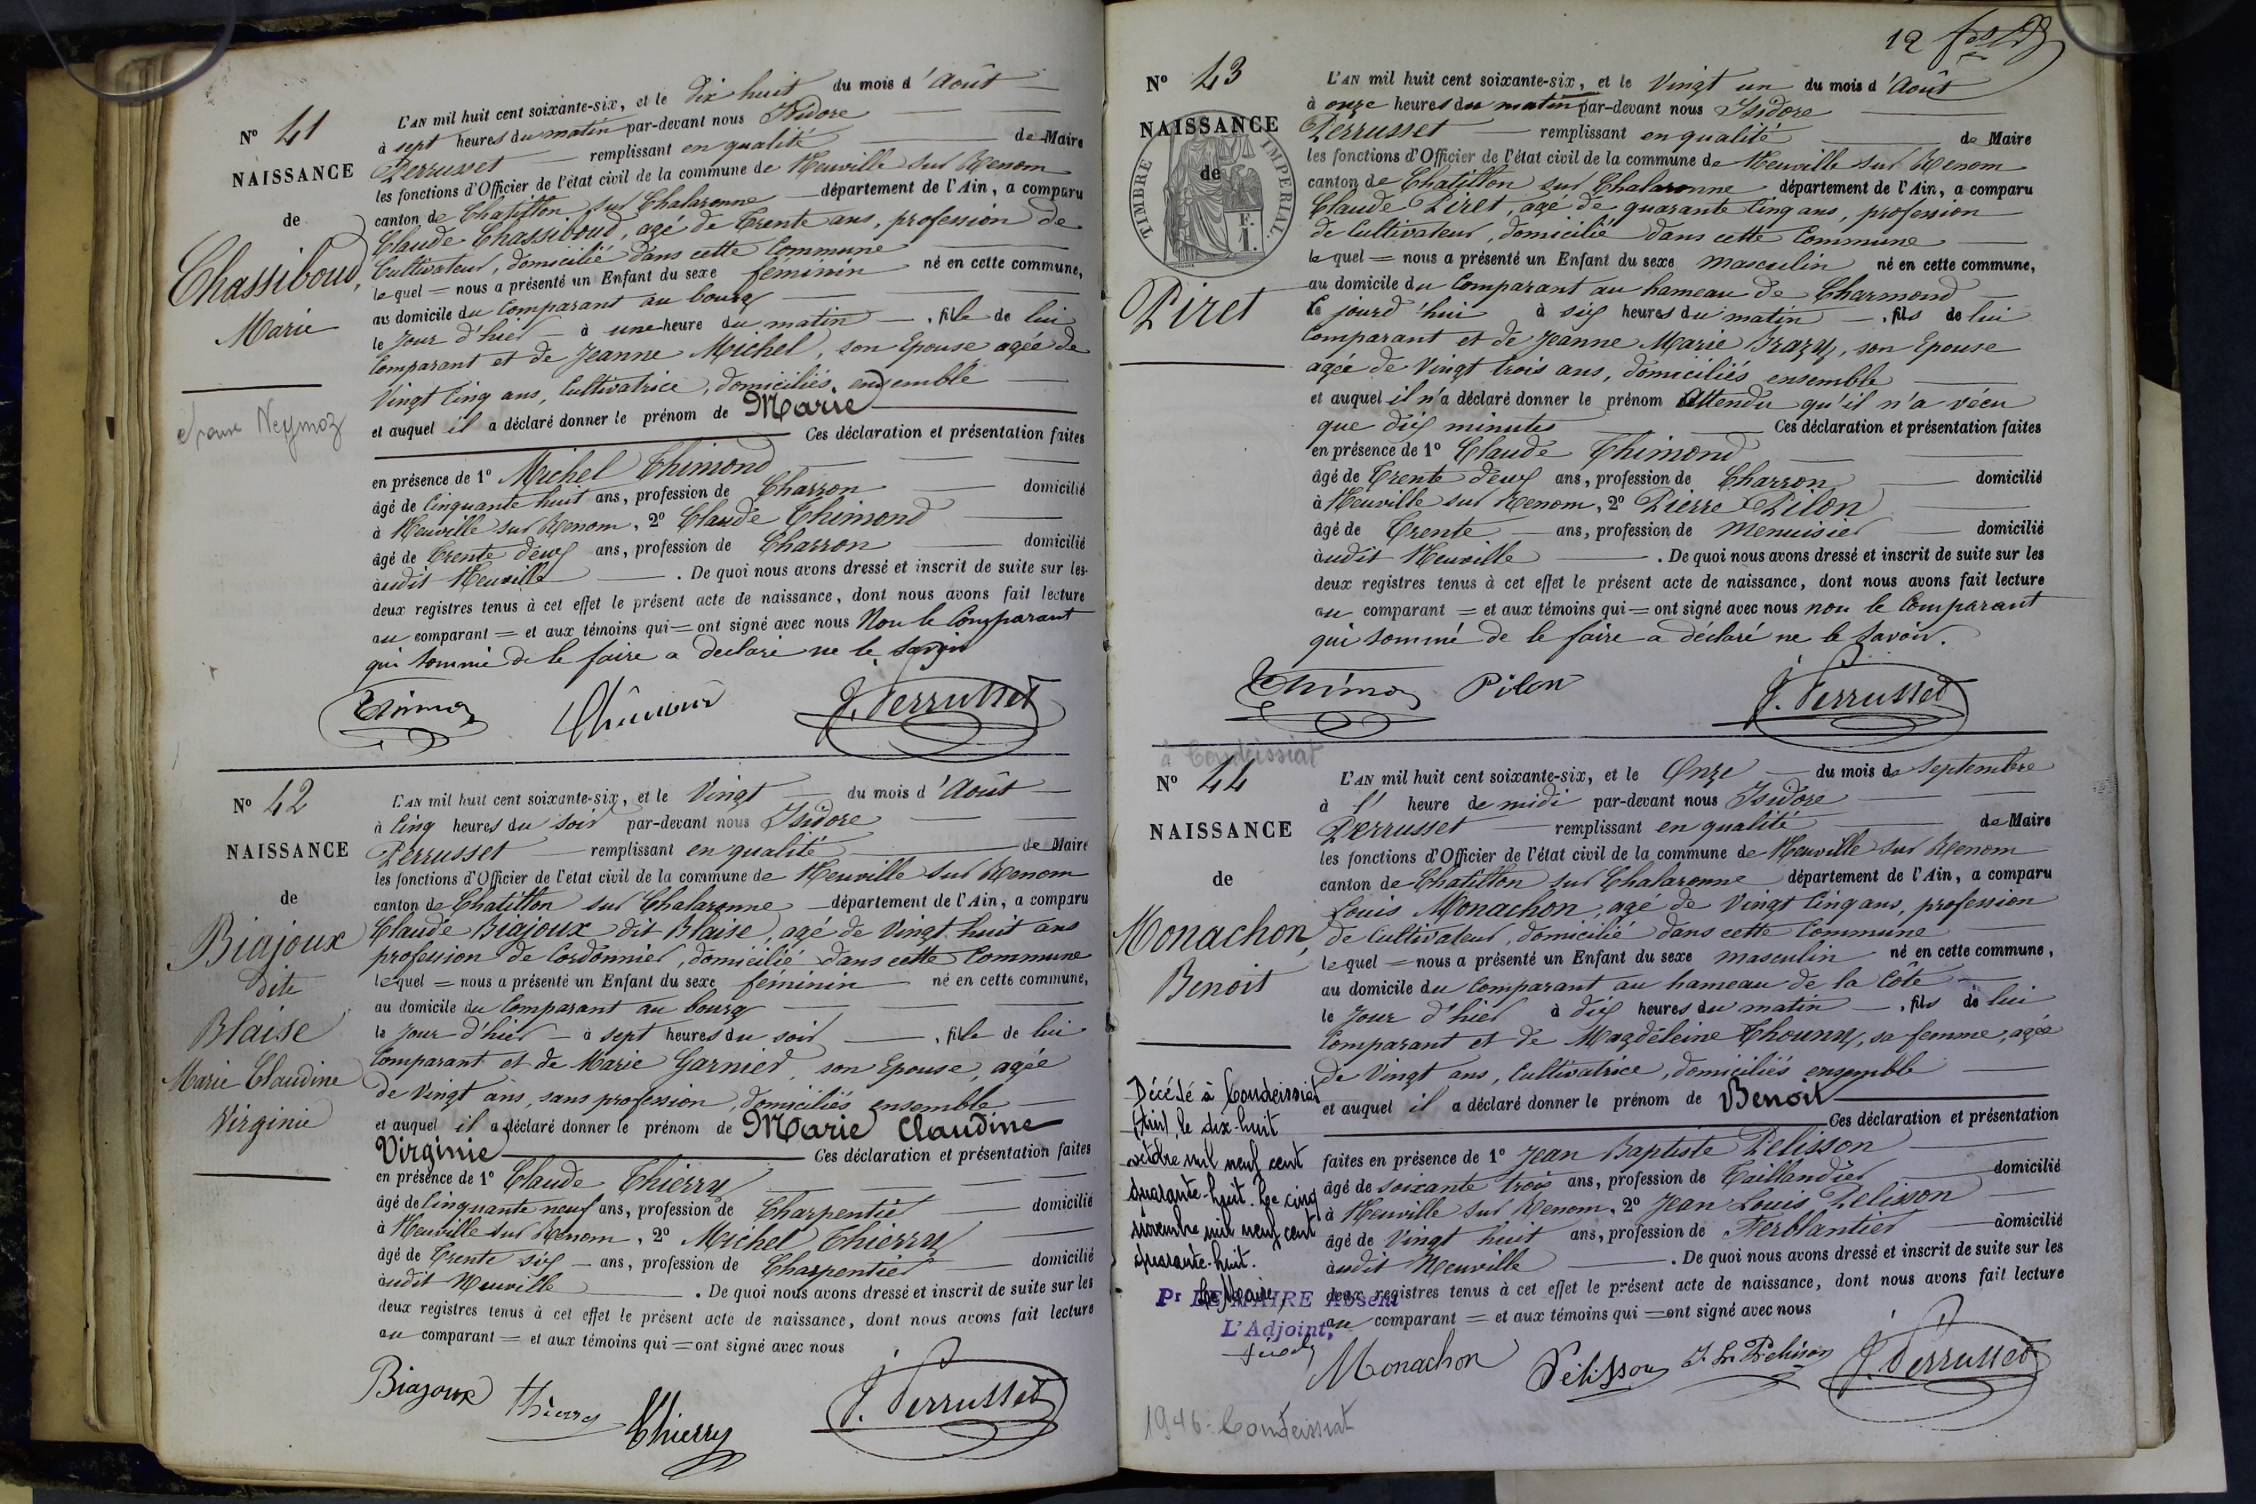 Nº 41
NAISSANCE
de
Chassiboud,
Marie
L'AN mil huit cent soixante-six, et le dix huit du mois d'Août
à sept heures du matin par-devant nous Isidore
Perrusset remplissant en qualité de Maire
les fonctions d'Officier de l'état civil de la commune de Neuville sur Renom
canton de Chatillon sur Chalaronne département de l'Ain, a comparu
Claude Chassiboud, agé de Trente ans, profession de
Cultivateur, domicilié dans cette Commune
lequel = nous a présenté un Enfant du sexe féminin né en cette commune,
au domicile du Comparant au bourg
le jour d'hier à une heure du matin, fille de lui
Comparant et de Jeanne Michel, son Epouse agée de
Vingt Cinq ans, Cultivatrice, domiciliés ensemble
et auquel il a déclaré donner le prénom de Marie
Ces déclaration et présentation faites
en présence de 1º Michel Thimond
âgé de Cinquante huit ans, profession de Charron domicilié
à Neuville sur Renom, 2º Claude Thimond
âgé de Trente deux ans, profession de Charron domicilié
àudit Neuville. De quoi nous avons dressé et inscrit de suite sur les
deux registres tenus à cet effet le présent acte de naissance, dont nous avons fait lecture
au comparant = et aux témoins qui = ont signé avec nous Non le Comparant
qui sommé de le faire a déclaré ne le savoir
J. Perrusset
Nº 42
NAISSANCE
de
Biajoux
dite
Blaise
Marie Claudine
Virginie
L'AN mil huit cent soixante-six, et le Vingt du mois d'Août
à Cinq heures du soir par-devant nous Isidore
Perrusset remplissant en qualité de Maire
les fonctions d'Officier de l'état civil de la commune de Neuville sur Renom
canton de Chatillon sur Chalaronne département de l'Ain, a comparu
Claude Biajoux dit Blaise, agé de Vingt huit ans
profession de Cordonnier, domicilié dans cette Commune
lequel = nous a présenté un Enfant du sexe féminin né en cette commune,
au domicile du Comparant au bourg
le jour d'hier à sept heures du soir, fille de lui
Comparant et de Marie Garnier, son Epouse, agée
de Vingt ans, sans profession, domiciliés ensemble
et auquel il a déclaré donner le prénom de Marie Claudine
Virginie Ces déclaration et présentation faites
en présence de 1º Claude Thierry
âgé de Cinquante neuf ans, profession de Charpentier domicilié
à Neuville sur Renom, 2º Michel Thierry
âgé de Trente six ans, profession de Charpentier domicilié
àudit Neuville. De quoi nous avons dressé et inscrit de suite sur les
deux registres tenus à cet effet le présent acte de naissance, dont nous avons fait lecture
au comparant = et aux témoins qui = ont signé avec nous
Biajoux Thierry Thierry J. Perrusset
12
Nº 43
NAISSANCE
de
TIMBRE IMPERIAL
F.
1.
Piret
L'AN mil huit cent soixante-six, et le Vingt un du mois d'Août
à onze heures du matin par-devant nous Isidore
Perrusset remplissant en qualité de Maire
les fonctions d'Officier de l'état civil de la commune de Neuville sur Renom
canton de Chatillon sur Chalaronne département de l'Ain, a comparu
Claude Piret, agé de quarante Cinq ans, profession
de Cultivateur, domicilié dans cette Commune
lequel = nous a présenté un Enfant du sexe masculin né en cette commune,
au domicile du Comparant au hameau de Charmond
Ce jourd'hui à six heures du matin, fils de lui
Comparant et de Jeanne Marie Brazy, son Epouse
agée de Vingt trois ans, domiciliés ensemble
et auquel il n'a déclaré donner le prénom attendu qu'il n'a vécu
que dix minutes Ces déclaration et présentation faites
en présence de 1º Claude Thimond
âgé de Trente deux ans, profession de Charron domicilié
à Neuville sur Renom, 2º Pierre Pilon
âgé de Trente ans, profession de Menuisier domicilié
àudit Neuville. De quoi nous avons dressé et inscrit de suite sur les
deux registres tenus à cet effet le présent acte de naissance, dont nous avons fait lecture
au comparant = et aux témoins qui = ont signé avec nous non le Comparant
qui sommé de le faire a déclaré ne le savoir.
Pilon J. Perrusset
à Condeissiat
Nº 44
NAISSANCE
de
Monachon,
Benoit
L'AN mil huit cent soixante-six, et le Onze du mois de Septembre
à l' heure de midi par-devant nous Isidore
Perrusset remplissant en qualité de Maire
les fonctions d'Officier de l'état civil de la commune de Neuville sur Renom
canton de Chatillon sur Chalaronne département de l'Ain, a comparu
Louis Monachon, agé de Vingt Cinq ans, profession
de Cultivateur, domicilié dans cette Commune
lequel = nous a présenté un Enfant du sexe masculin né en cette commune,
au domicile du Comparant au hameau de la Côte
le jour d'hier à dix heures du matin, fils de lui
Comparant et de Magdeleine Chouny, sa femme, agée
de Vingt ans, Cultivatrice, domiciliés ensemble
et auquel il a déclaré donner le prénom de Benoit
Ces déclaration et présentation
faites en présence de 1º Jean Baptiste Pelisson
âgé de soixante trois ans, profession de Taillandier domicilié
à Neuville sur Renom, 2º Jean Louis Pelisson
âgé de Vingt huit ans, profession de Ferblantier domicilié
àudit Neuville. De quoi nous avons dressé et inscrit de suite sur les
deux registres tenus à cet effet le présent acte de naissance, dont nous avons fait lecture
au comparant = et aux témoins qui = ont signé avec nous
Décédé à Condeissiat
(Ain), le dix-huit
octobre mil neuf cent
quarante-huit. Le cinq
novembre mil neuf cent
quarante-huit.
Le Maire,
Pr LE MAIRE Absent
L'Adjoint,
Monachon Pelisson J. L. Pelisson J. Perrusset
1946 - Condeissiat